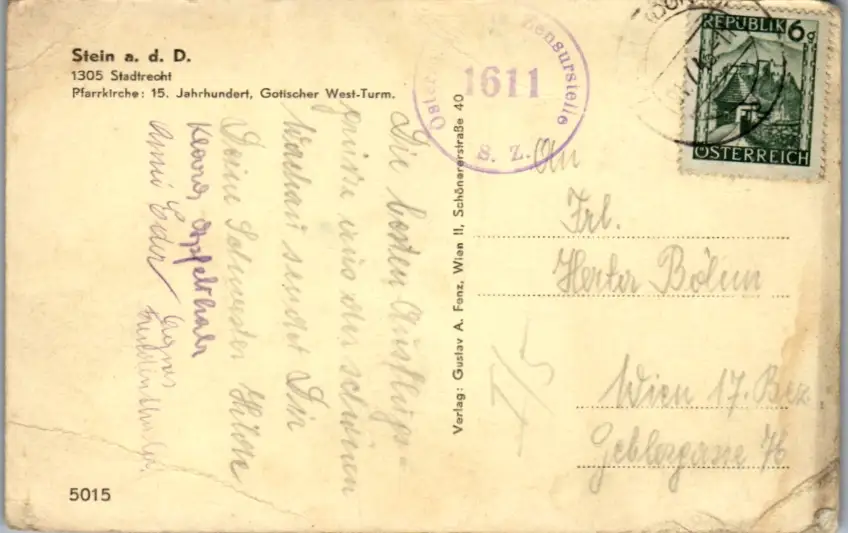 Stein a. d. D.
1305 Stadtrecht
Pfarrkirche: 15. Jahrhundert, Gotischer West-Turm.
Die besten Ausflugs-
grüsse aus der schönen
Wachau sendet Dir
Deine Schwester Hilde
Apfelthaler
Anni Eder
Agnes
5015
Verlag: Gustav A. Fenz, Wien II, Schönererstraße 40
Zensurstelle
1611
S. Z.
REPUBLIK 6g
ÖSTERREICH
An
Frl.
Herta Böhm
I/5
Wien 17. Bez.
Geblergasse 76